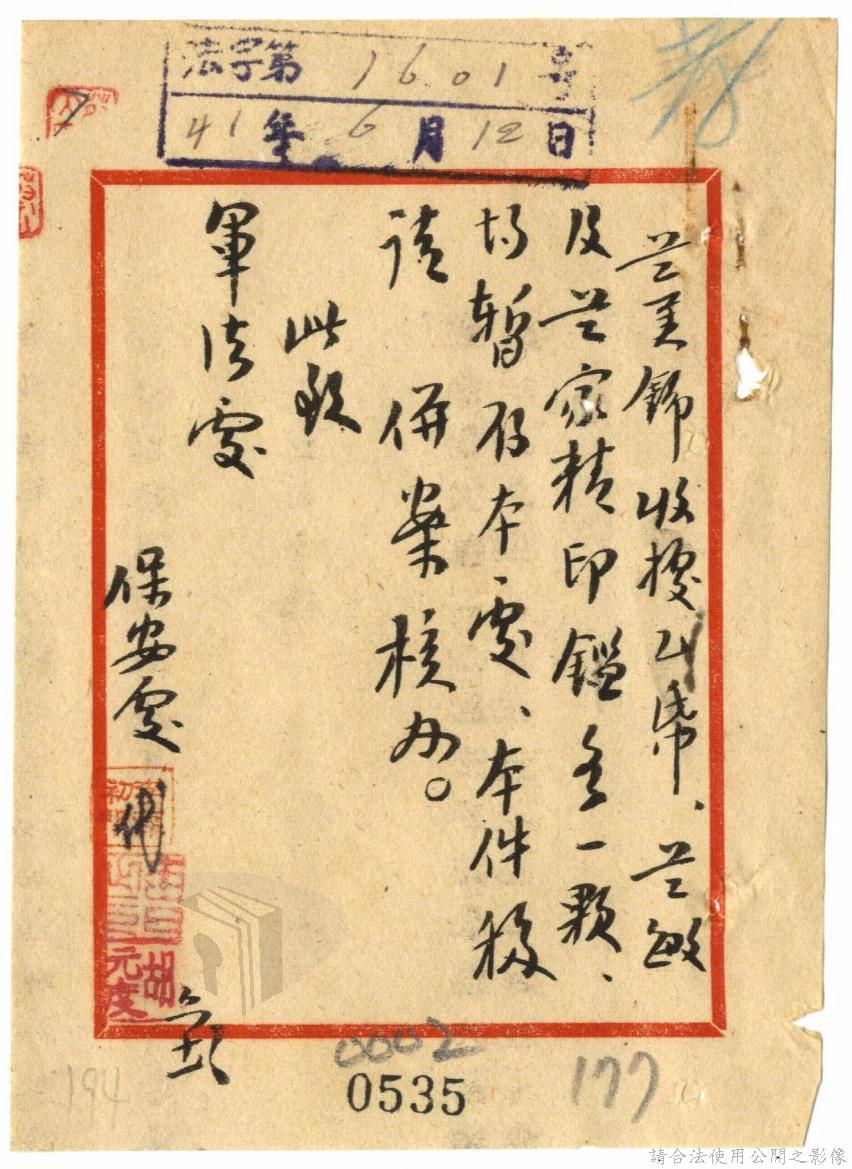 法字第1601号
41年6月12日
美錦收據乙帋、敏
及家精印鑑各一顆、
均暫存本處、本件移
請 併案核办。
此致
軍法處
保安處 代
胡元度
0002
0535
177
194
請合法使用公開之影像